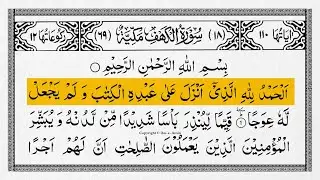 اٰیَاتُهَا ۱۱۰ (۱۸) سُوْرَةُ الْكَهْفِ مَكِّيَّةٌ (۶۹) رُكُوْعَاتُهَا ۱۲
بِسْمِ اللّٰهِ الرَّحْمٰنِ الرَّحِيْمِ
اَلْحَمْدُ لِلّٰهِ الَّذِيْۤ اَنْزَلَ عَلٰى عَبْدِهِ الْكِتٰبَ وَ لَمْ يَجْعَلْ
لَّهٗ عِوَجًا ۱ قَيِّمًا لِّيُنْذِرَ بَاْسًا شَدِيْدًا مِّنْ لَّدُنْهُ وَ يُبَشِّرَ
الْمُؤْمِنِيْنَ الَّذِيْنَ يَعْمَلُوْنَ الصّٰلِحٰتِ اَنَّ لَهُمْ اَجْرًا